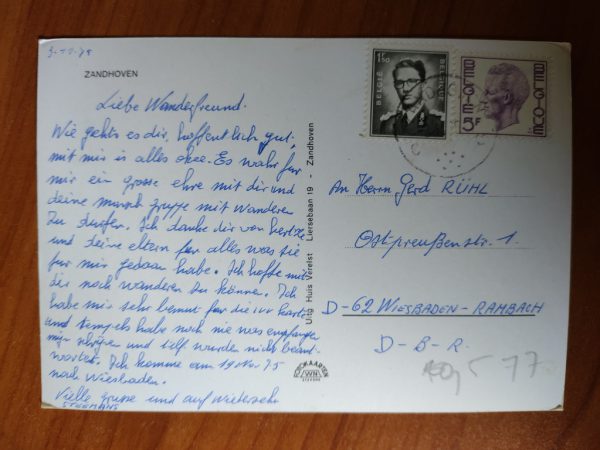 ZANDHOVEN
Liebe Wanderfreund.
Wie gehts es dir, hoffentlich gut,
mit mir is alles okee. Es wahr fur
mir ein grosse ehre mit dir und
deine marsch gruppe mit wanderen
zu durfen. Ich danke dir von hertze
und deine eltern fur alles was sie
fur mir gedaan habe. Ich hoffe mit
dir noch wanderen zu können. Ich
habe mir sehr bemut fur die ivv kart
und ich habe noch nie was empfangen
und wurden nicht beant-
wortet. Ich komme am 19 Nov 75
nach Wiesbaden.
Vielle grusse und auf wiedersehn
STEEMANS
Uitg. Huis Verelst Liersebaan 19 - Zandhoven
POSTKAARTEN
WN
1F50
BELGIE
BELGIQUE
BELGIE
BELGIQUE
5F
An Herrn Gerd RÜHL
Ostpreußenstr. 1
D-62 WIESBADEN-RAMBACH
D-B-R.
77